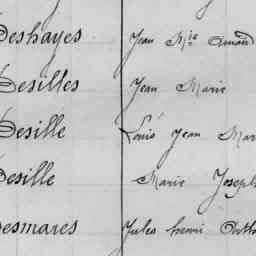 Deshayes Jean Mie Amand
Desilles Jean Marie
Desille Louis Jean Mar
Desille Marie Joseph
Desmares Jules henri